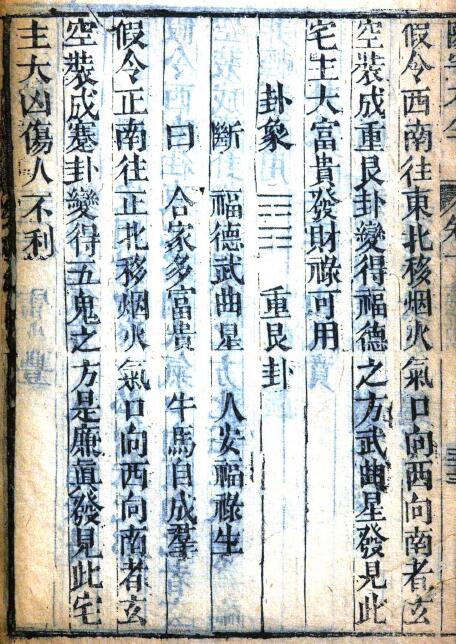 假令西南往東北移烟火氣口向西向南者玄
空裝成重艮卦變得福德之方武曲星發見此
宅主大富貴發財祿可用
卦象 ☶☶ 重艮卦
斷 福德武曲星 人安福祿生
曰 合家多富貴 牛馬自成羣
假令正南往正北移烟火氣口向西向南者玄
空裝成蹇卦變得五鬼之方是廉真發見此宅
主大凶傷人不利